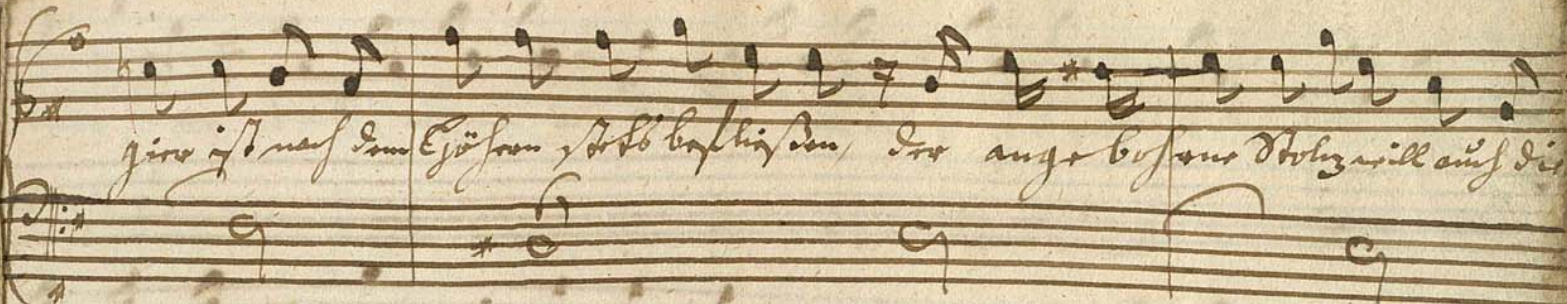 gier ist nach dem Höhern stets befließen, der angebohrne Stolz will auch die